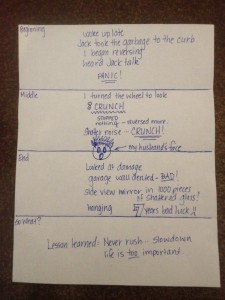 Beginning
woke up late
Jack took the garbage to the curb
I began reversing
heard Jack talk
PANIC!
Middle
I turned the wheel to look
CRUNCH
stopped
nothing - reversed more
louder noise - CRUNCH!
my husband's face
End
Looked at damage
garage was dented - BAD!
side view mirror in 1000 pieces
of shattered glass!
hanging
7 years bad luck
so What?
Lesson learned: Never rush - slow down
life is too important.